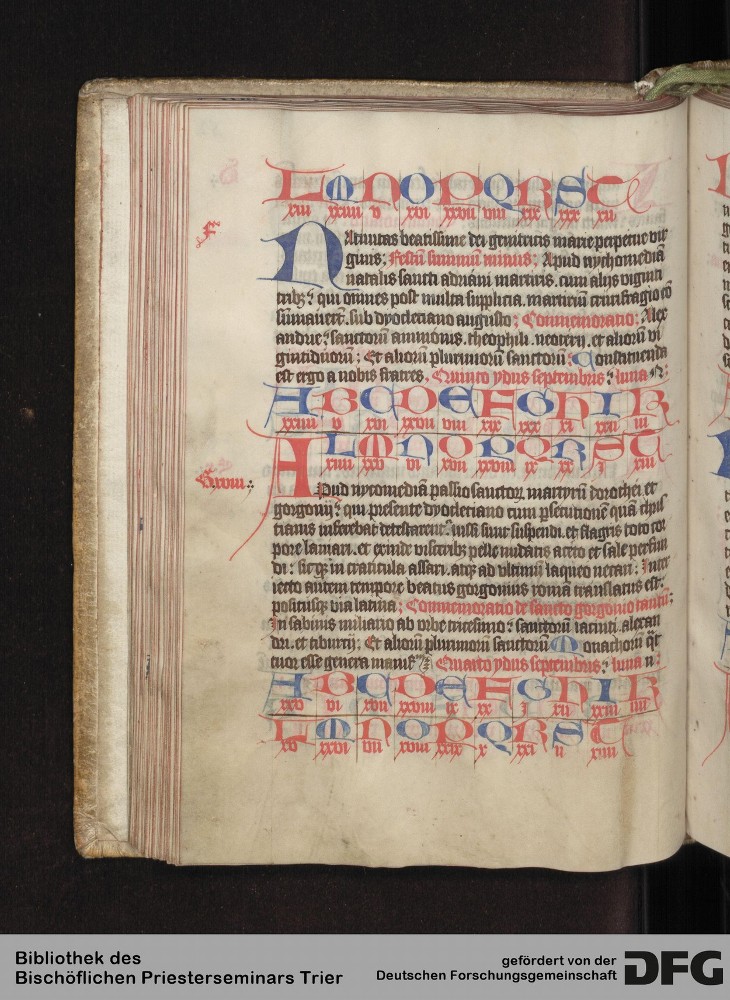 L M N O P Q R S T
xiii xxiiii v xvi xxvii viii xix xxx xii
F
Natiuitas beatissime dei genitricis marie perpetue vir
ginis; Festũ summũ minus; Apud nychomediã
natalis sancti adriani martiris. cum alijs viginti
tribꝫ: qui omnes post multa supplicia. martiriũ crucifragio cõ
sũmauerũt. sub dyocletiano augusto; Commemoratio; Alex
andrie: sanctorũ ammonis. theophili. neoterij. et aliorũ vi
gintiduorũ; Et aliorũ plurimorũ sanctorũ; Constituenda
est ergo a nobis fratres. Quinto ydus septembris: luna
A B C D E F G H I K
xxiiii v xvi xxvii viii xix xxx xi xxii iii
L M N O P Q R S T
xiiii xxv vi xvii xxviii ix xx i xiii
Apud nycomediã passio sanctoꝝ martyrũ dorothei. et
gorgonij: qui presente dyocletiano cum ꝑsecutionẽ quã chris
tianis inferebat detestarent᷑. iussi sunt suspendi. et flagris toto cor
pore laniari. et exinde visceribꝫ pelle nudatis aceto et sale perfun
di: sicqꝫ in craticula assari. atqꝫ ad vltimũ laqueo necari; Inter
iecto autem tempore beatus gorgonius romã translatus est.
positusqꝫ via latina; Commemoratio de sancto gorgonio tantũ;
In sabinis miliario ab vrbe tricesimo: sanctorũ iacinti. alexan
dri. et tiburcij; Et aliorũ plurimorũ sanctorũ Monachorũ qꝛ
tuor esse genera Quarto ydus septembris: luna
A B C D E F G H I K
xxv vi xvii xxviii ix xx i xii xxiii iiii
L M N O P Q R S T
xv xxvi vii xviii xxix x xxi ii xiiii
Bibliothek des
Bischöflichen Priesterseminars Trier
gefördert von der
Deutschen Forschungsgemeinschaft
DFG